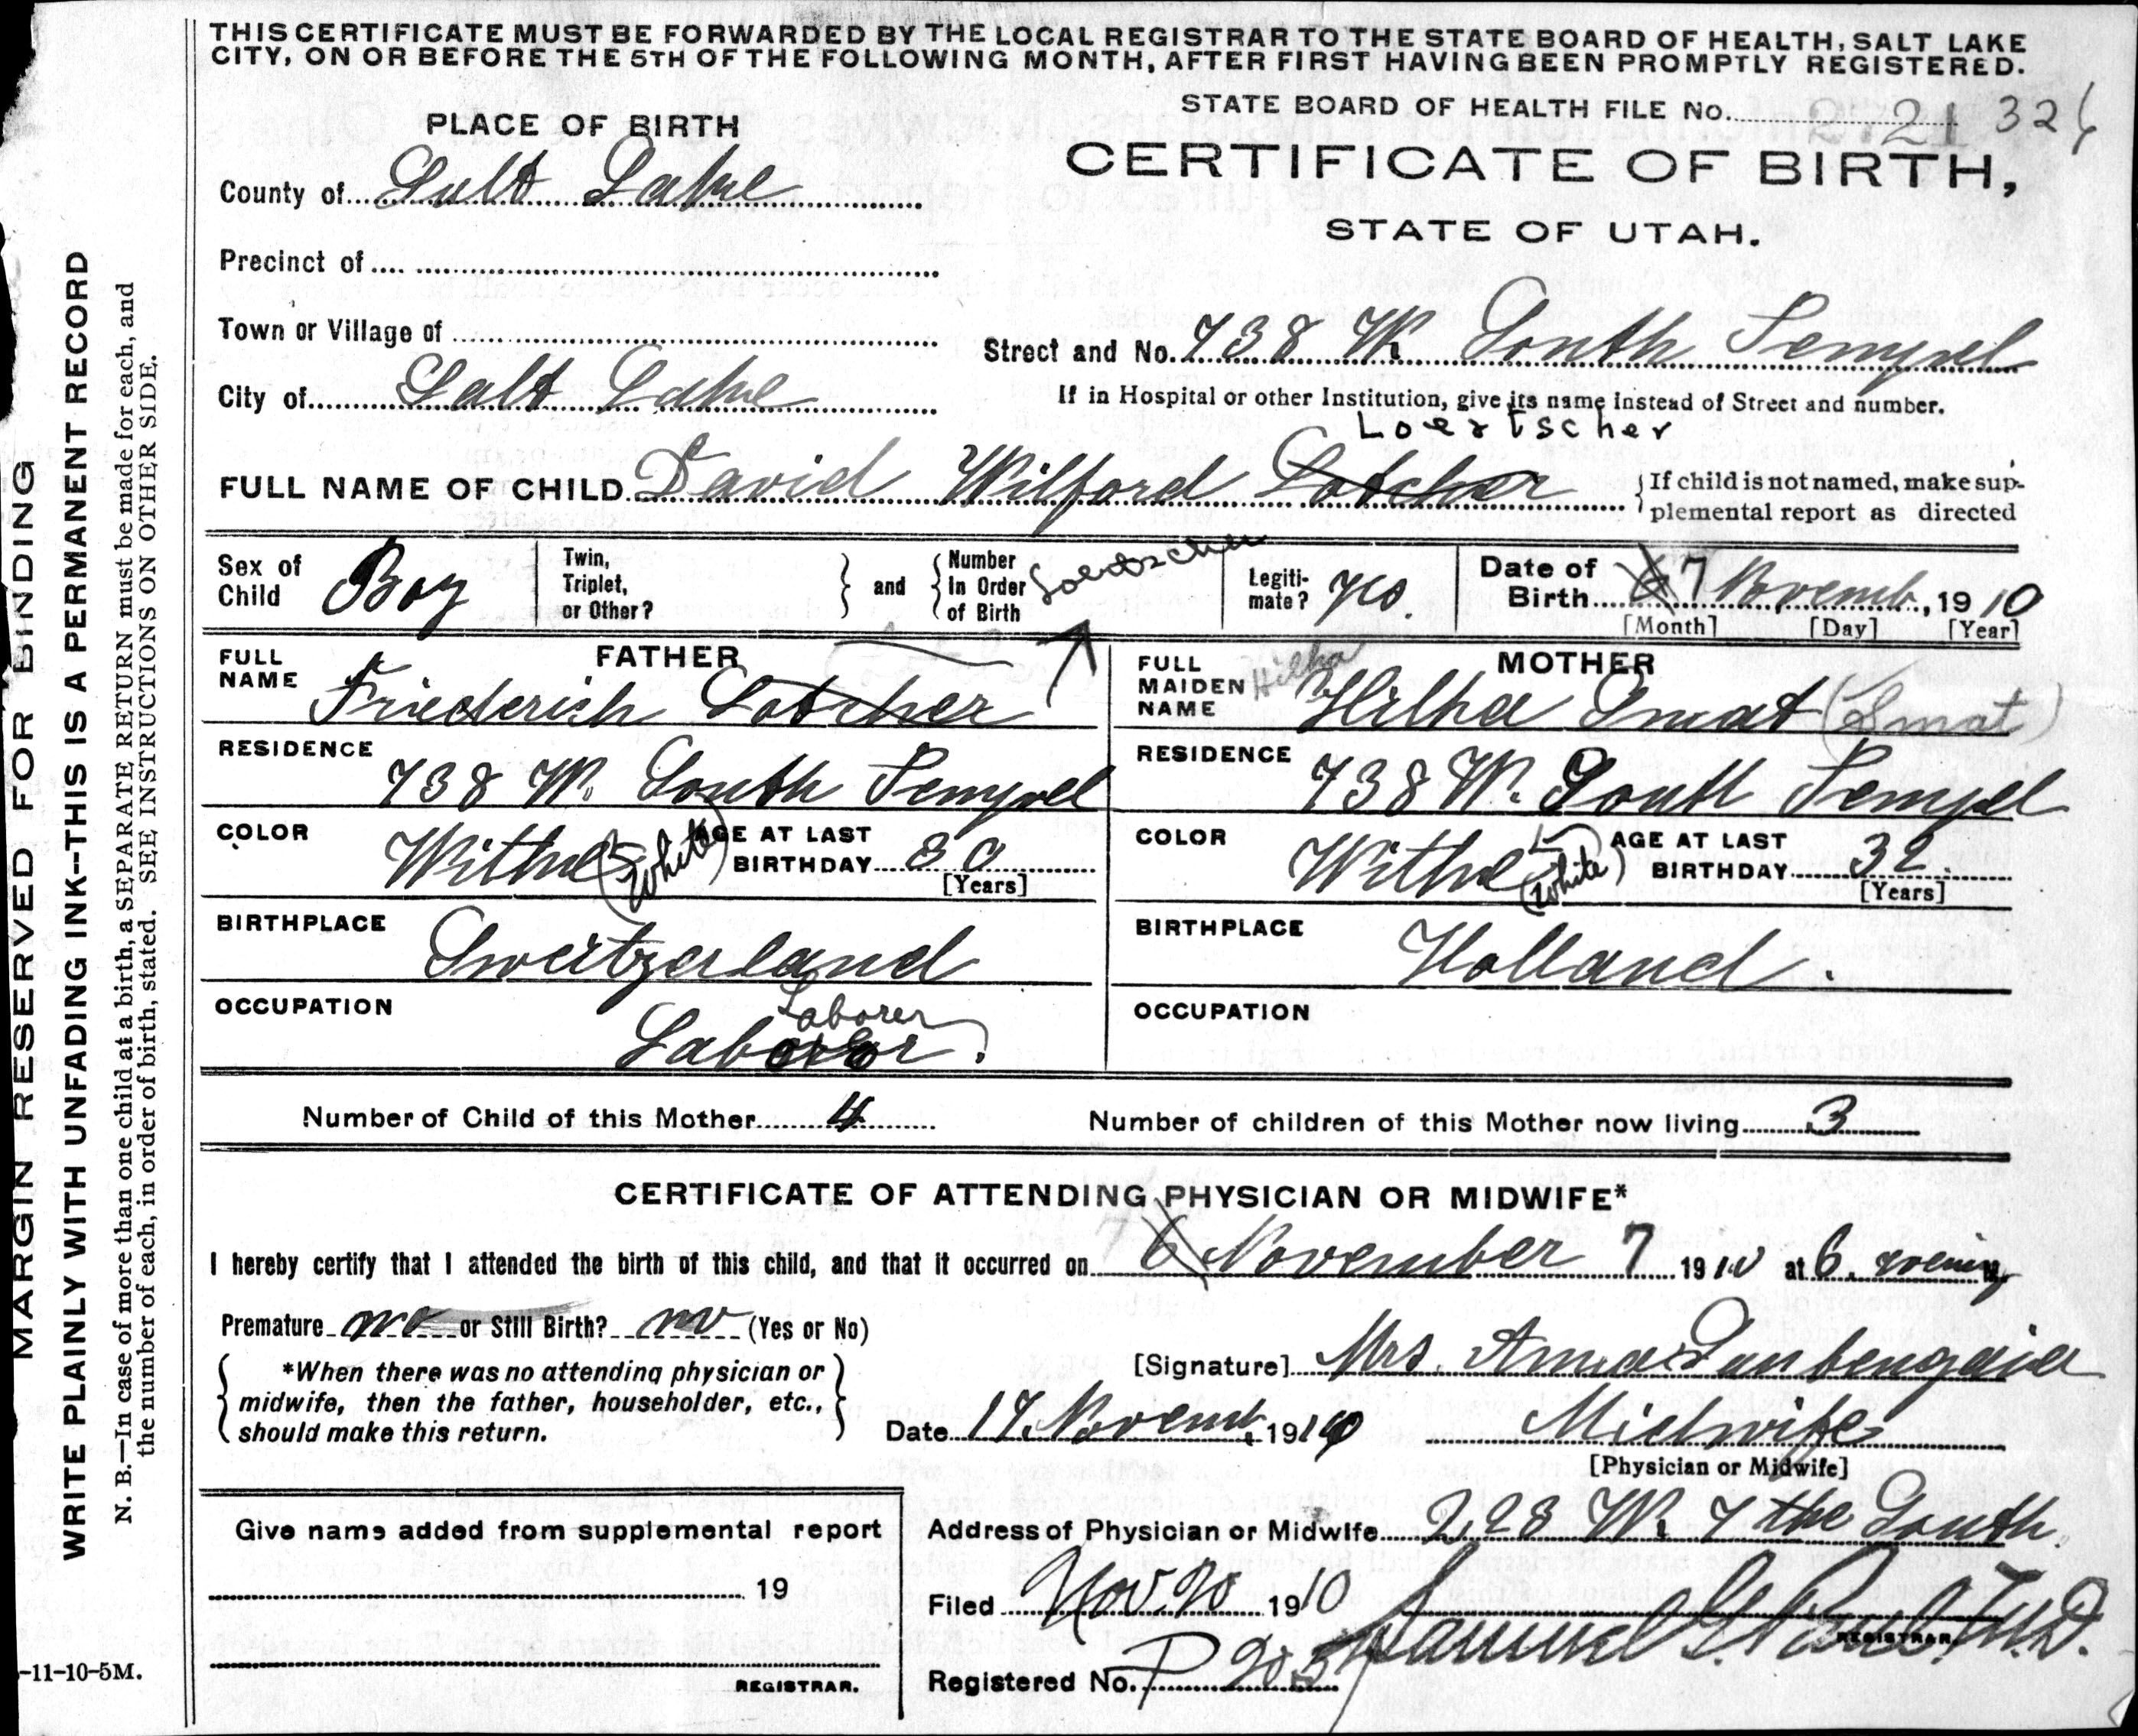 THIS CERTIFICATE MUST BE FORWARDED BY THE LOCAL REGISTRAR TO THE STATE BOARD OF HEALTH, SALT LAKE
CITY, ON OR BEFORE THE 5TH OF THE FOLLOWING MONTH, AFTER FIRST HAVING BEEN PROMPTLY REGISTERED.
STATE BOARD OF HEALTH FILE No.
PLACE OF BIRTH
CERTIFICATE OF BIRTH,
STATE OF UTAH.
County of Salt Lake
Precinct of
Town or Village of
Street and No. 738 W. South Tempel
City of Salt Lake
If in Hospital or other Institution, give its name instead of Street and number.
Loertscher
FULL NAME OF CHILD David Wilford Lotscher
If child is not named, make sup-
plemental report as directed
Sex of Child Boy
Twin, Triplet, or Other?
and
Number in Order of Birth
Loertscher
Legiti-mate? yes.
Date of Birth 6 7 Novemb, 1910
[Month] [Day] [Year]
FATHER
FULL NAME Friederich Lotscher
MOTHER
FULL MAIDEN NAME Hilha Hilha Smat (Smat)
RESIDENCE 738 W. South Tempel
RESIDENCE 738 W. South Tempel
COLOR Withe (White)
AGE AT LAST BIRTHDAY 30
[Years]
COLOR Withe (White)
AGE AT LAST BIRTHDAY 32
[Years]
BIRTHPLACE Sweitzerland
BIRTHPLACE Holland.
OCCUPATION Laborer
OCCUPATION
Number of Child of this Mother 4
Number of children of this Mother now living 3
CERTIFICATE OF ATTENDING PHYSICIAN OR MIDWIFE*
I hereby certify that I attended the birth of this child, and that it occurred on 7 6 November 7 1910 at 6. evening M.
Premature no or Still Birth? no (Yes or No)
*When there was no attending physician or
midwife, then the father, householder, etc.,
should make this return.
[Signature] Mrs. Anna
Date 17 Novemb, 1910
Midwife
[Physician or Midwife]
Give name added from supplemental report
19
REGISTRAR.
Address of Physician or Midwife 228 W. 7 the South.
Filed Nov. 20 1910
Samuel G. Paul, M.D.
REGISTRAR.
Registered No. P
-11-10-5M.
MARGIN RESERVED FOR BINDING
WRITE PLAINLY WITH UNFADING INK--THIS IS A PERMANENT RECORD
N. B.—In case of more than one child at a birth, a SEPARATE RETURN must be made for each, and
the number of each, in order of birth, stated. SEE INSTRUCTIONS ON OTHER SIDE.